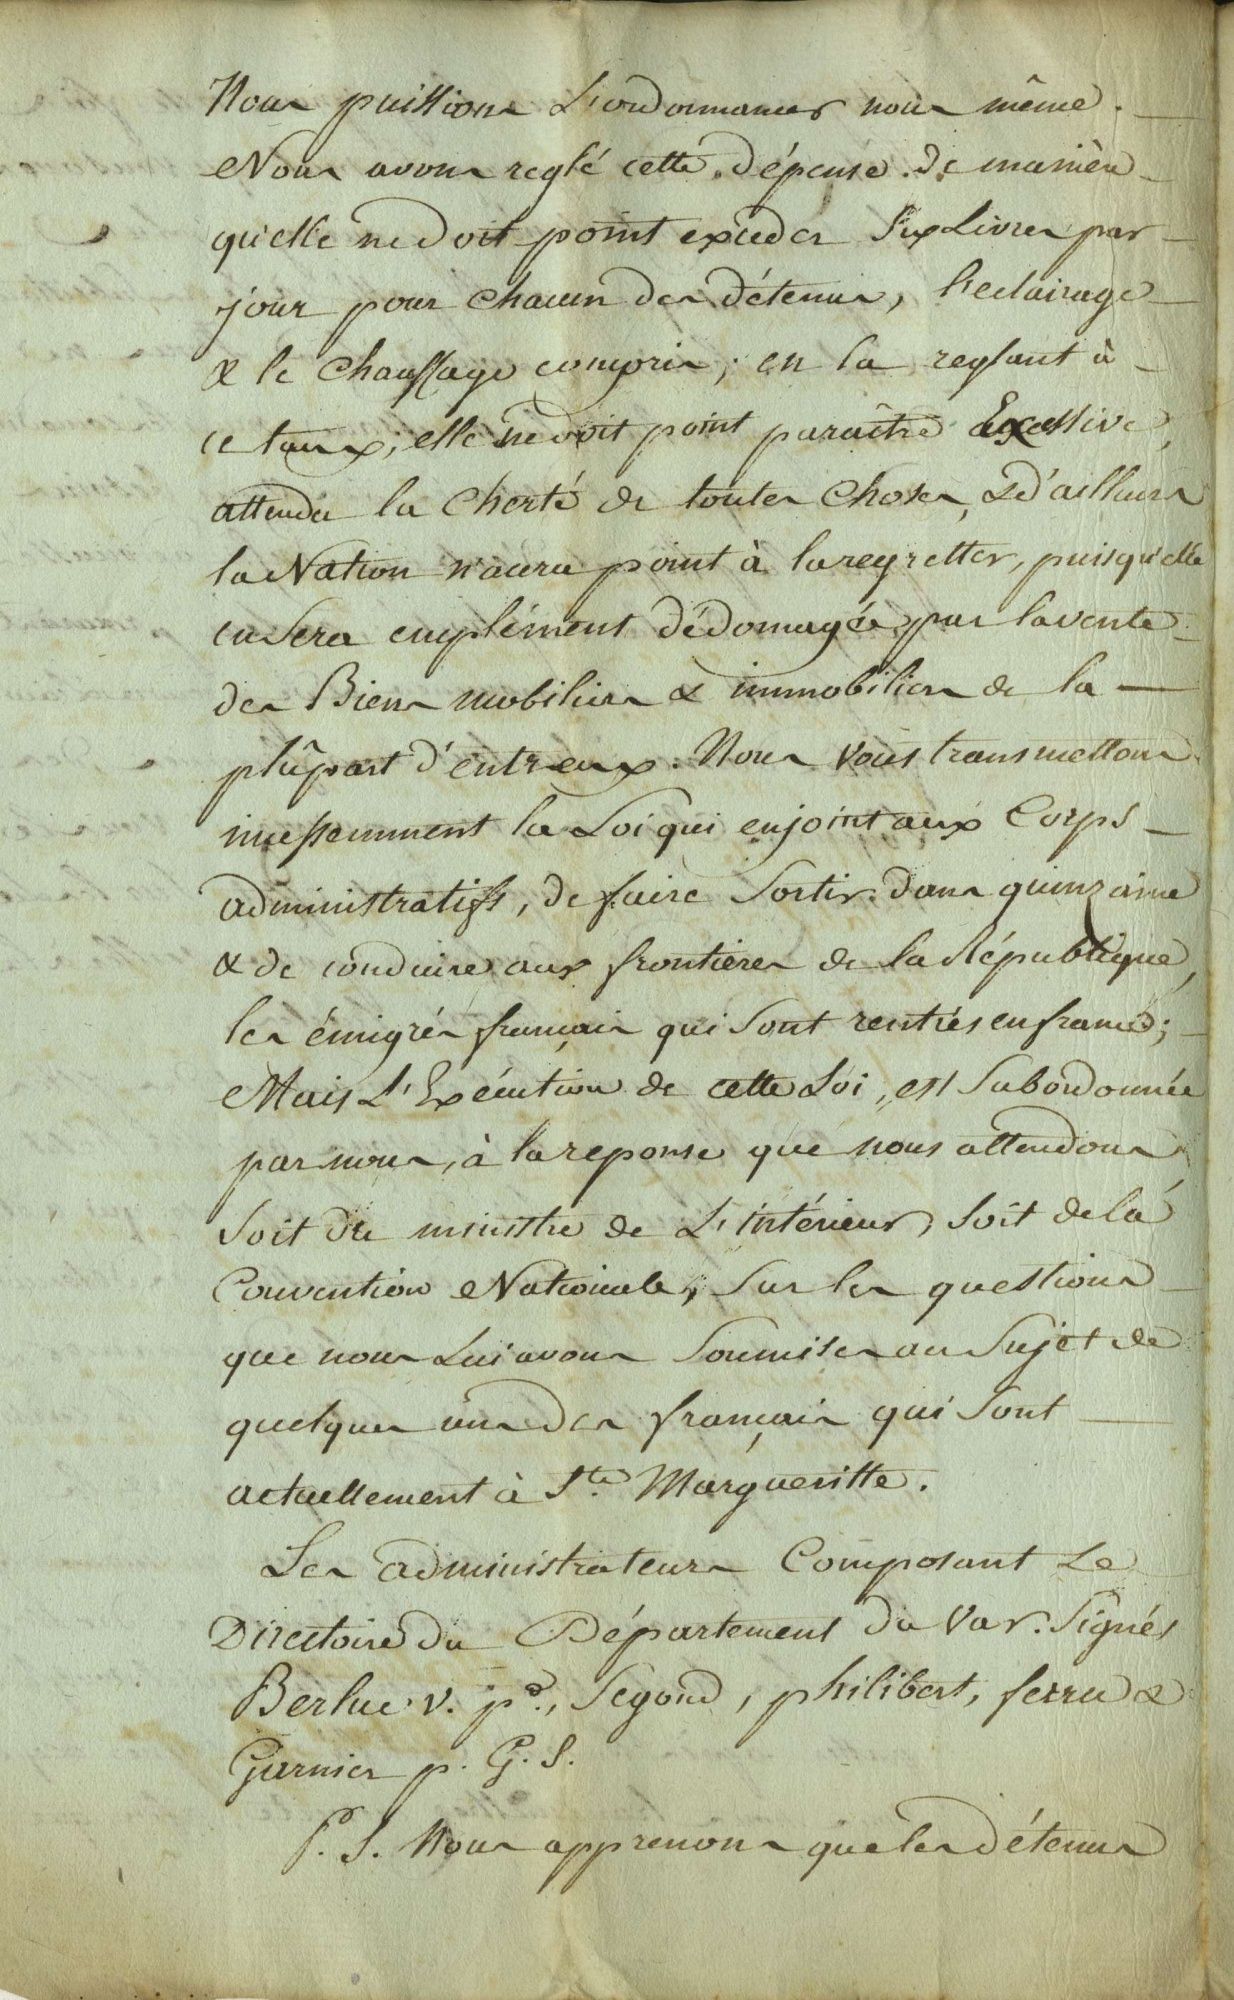 Nous puissions L'ordonnancer nous même.
Nous avons reglé cette dépense de manière
qu'elle ne doit point exceder Six Livres par
jour pour chacun des détenus, l'eclairage
& le chauffage compris; en la reglant à
ce taux, elle ne doit point paraître Excessive,
attendu la cherté de toutes choses, & d'ailleurs
la Nation n'aura point à la regretter, puisqu'elle
en sera emplément dédomagée par la vente
des Biens mobiliers & immobiliers de la
plûpart d'entreux. Nous vous transmettons
incessemment la Loi qui enjoint aux Corps
administratifs, de faire Sortir dans quinzaine
& de conduire aux frontieres de la République,
les émigrés français qui Sont rentrés en france;
Mais L'Exécution de cette Loi, est Subordonnée
par nous, à la reponse que nous attendons
Soit du ministre de L'intérieur, Soit de la
Convention Nationale, Sur les questions
que nous Lui avons Soumises au Sujet de
quelques uns des français qui Sont
actuellement à Ste. Margueritte.
Les administrateurs Composant Le
Directoire du Département du Var. Signés
Berluc v. pd., Segond, philibert, ferru &
Garnier p. G. S.
P. S. Nous apprenons que les détenus